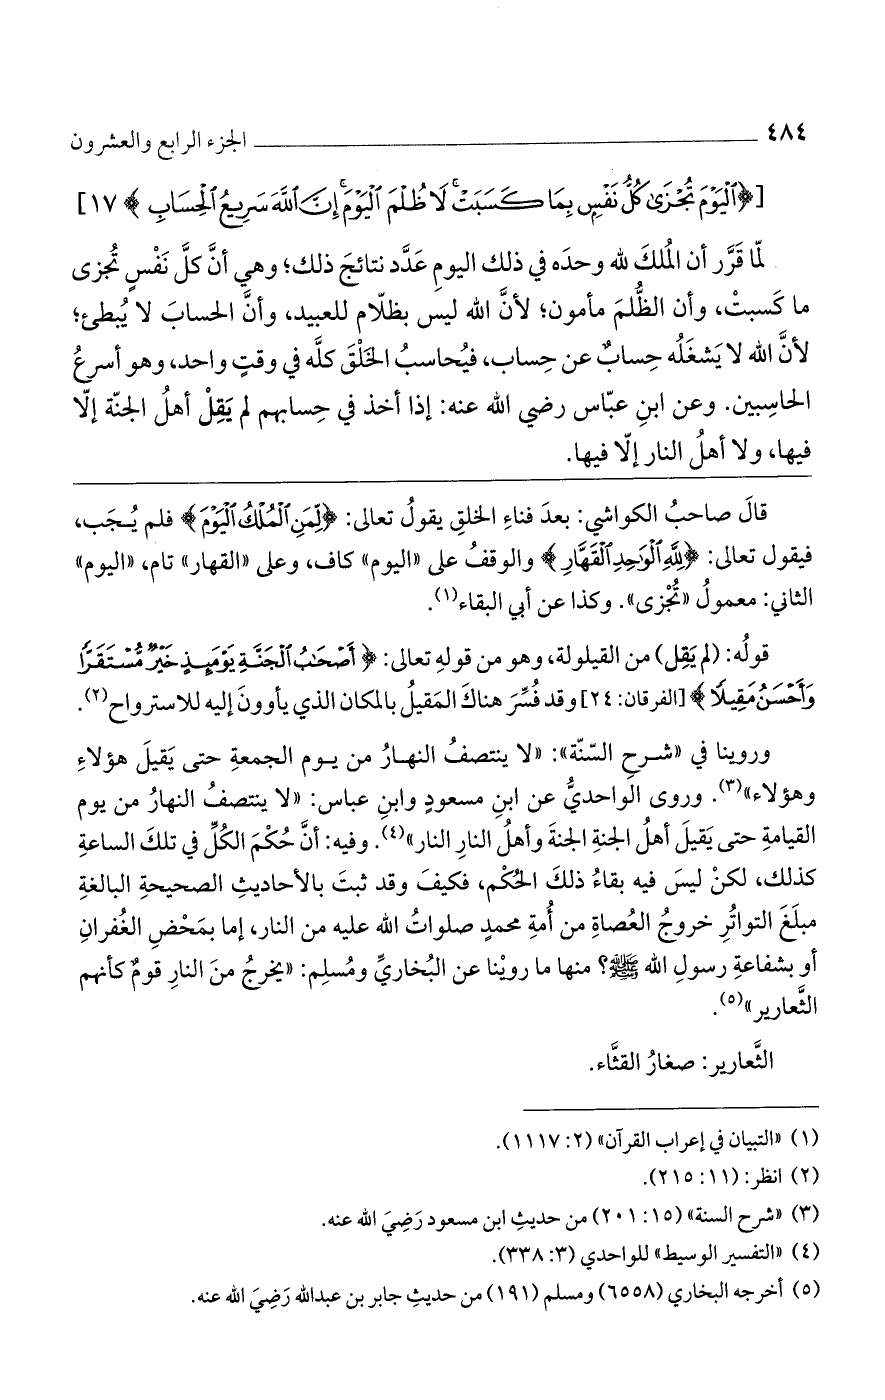 ٤٨٤ الجزء الرابع والعشرون
[﴿ٱلۡيَوۡمَ تُجۡزَىٰ كُلُّ نَفۡسِۭ بِمَا كَسَبَتۡۚ لَا ظُلۡمَ ٱلۡيَوۡمَۚ إِنَّ ٱللَّهَ سَرِيعُ ٱلۡحِسَابِ﴾ ١٧]
لمّا قَرَّر أن المُلكَ لله وحدَه في ذلك اليومِ عَدَّد نتائجَ ذلك؛ وهي أنَّ كلَّ نَفْسٍ تُجزى
ما كَسبتْ، وأن الظُّلمَ مأمون؛ لأنَّ الله ليس بظلّام للعبيد، وأنَّ الحسابَ لا يُبطئ؛
لأنَّ الله لا يَشغَلُه حِسابٌ عن حِساب، فيُحاسبُ الخَلْقَ كلَّه في وقتٍ واحد، وهو أسرعُ
الحاسِبين. وعن ابنِ عبّاس رضي الله عنه: إذا أخذ في حِسابهم لم يَقِلْ أهلُ الجنّة إلّا
فيها، ولا أهلُ النار إلّا فيها.
قالَ صاحبُ الكواشي: بعدَ فناءِ الخلقِ يقولُ تعالى: ﴿لِّمَنِ ٱلۡمُلۡكُ ٱلۡيَوۡمَ﴾ فلم يُـجَب،
فيقول تعالى: ﴿لِلَّهِ ٱلۡوَٰحِدِ ٱلۡقَهَّارِ﴾ والوقفُ على «اليوم» كاف، وعلى «القهار» تام، «اليوم»
الثاني: معمولُ «تُجْزى». وكذا عن أبي البقاء(١).
قولُه: (لم يَقِل) من القيلولة، وهو من قولِه تعالى: ﴿أَصۡحَٰبُ ٱلۡجَنَّةِ يَوۡمَئِذٍ خَيۡرٞ مُّسۡتَقَرّٗا
وَأَحۡسَنُ مَقِيلٗا﴾ [الفرقان: ٢٤] وقد فُسِّرَ هناكَ المَقيلُ بالمكان الذي يأوونَ إليه للاسترواح(٢).
وروينا في «شـرحِ السّنّة»: «لا ينتصفُ النهـارُ من يـوم الجمعةِ حتى يَقيلَ هؤلاءِ
وهؤلاء»(٣). وروى الواحديُّ عن ابنِ مسعودٍ وابنِ عباس: «لا ينتصفُ النهارُ من يوم
القيامةِ حتى يَقيلَ أهلُ الجنةِ الجنةَ وأهلُ النارِ النار»(٤). وفيه: أنَّ حُكْمَ الكُلِّ في تلكَ الساعةِ
كذلك، لكنْ ليسَ فيه بقاءُ ذلكَ الحُكْم، فكيفَ وقد ثبتَ بالأحاديثِ الصحيحةِ البالغةِ
مبلَغَ التواتُرِ خروجُ العُصاةِ من أُمةِ محمدٍ صلواتُ الله عليه من النار، إما بمَحْضِ الغُفرانِ
أو بشفاعةِ رسولِ الله ﷺ؟ منها ما رويْنا عن البُخاريِّ ومُسلِم: «يخرجُ منَ النارِ قومٌ كأنهم
الثَّعارير»(٥).
الثَّعارير: صغارُ القثَّاء.
(١) «التبيان في إعراب القرآن» (٢: ١١١٧).
(٢) انظر: (١١: ٢١٥).
(٣) «شرح السنة» (١٥: ٢٠١) من حديثِ ابن مسعود رَضِيَ الله عنه.
(٤) «التفسير الوسيط» للواحدي (٣: ٣٣٨).
(٥) أخرجه البخاري (٦٥٥٨) ومسلم (١٩١) من حديثِ جابر بن عبدالله رَضِيَ الله عنه.